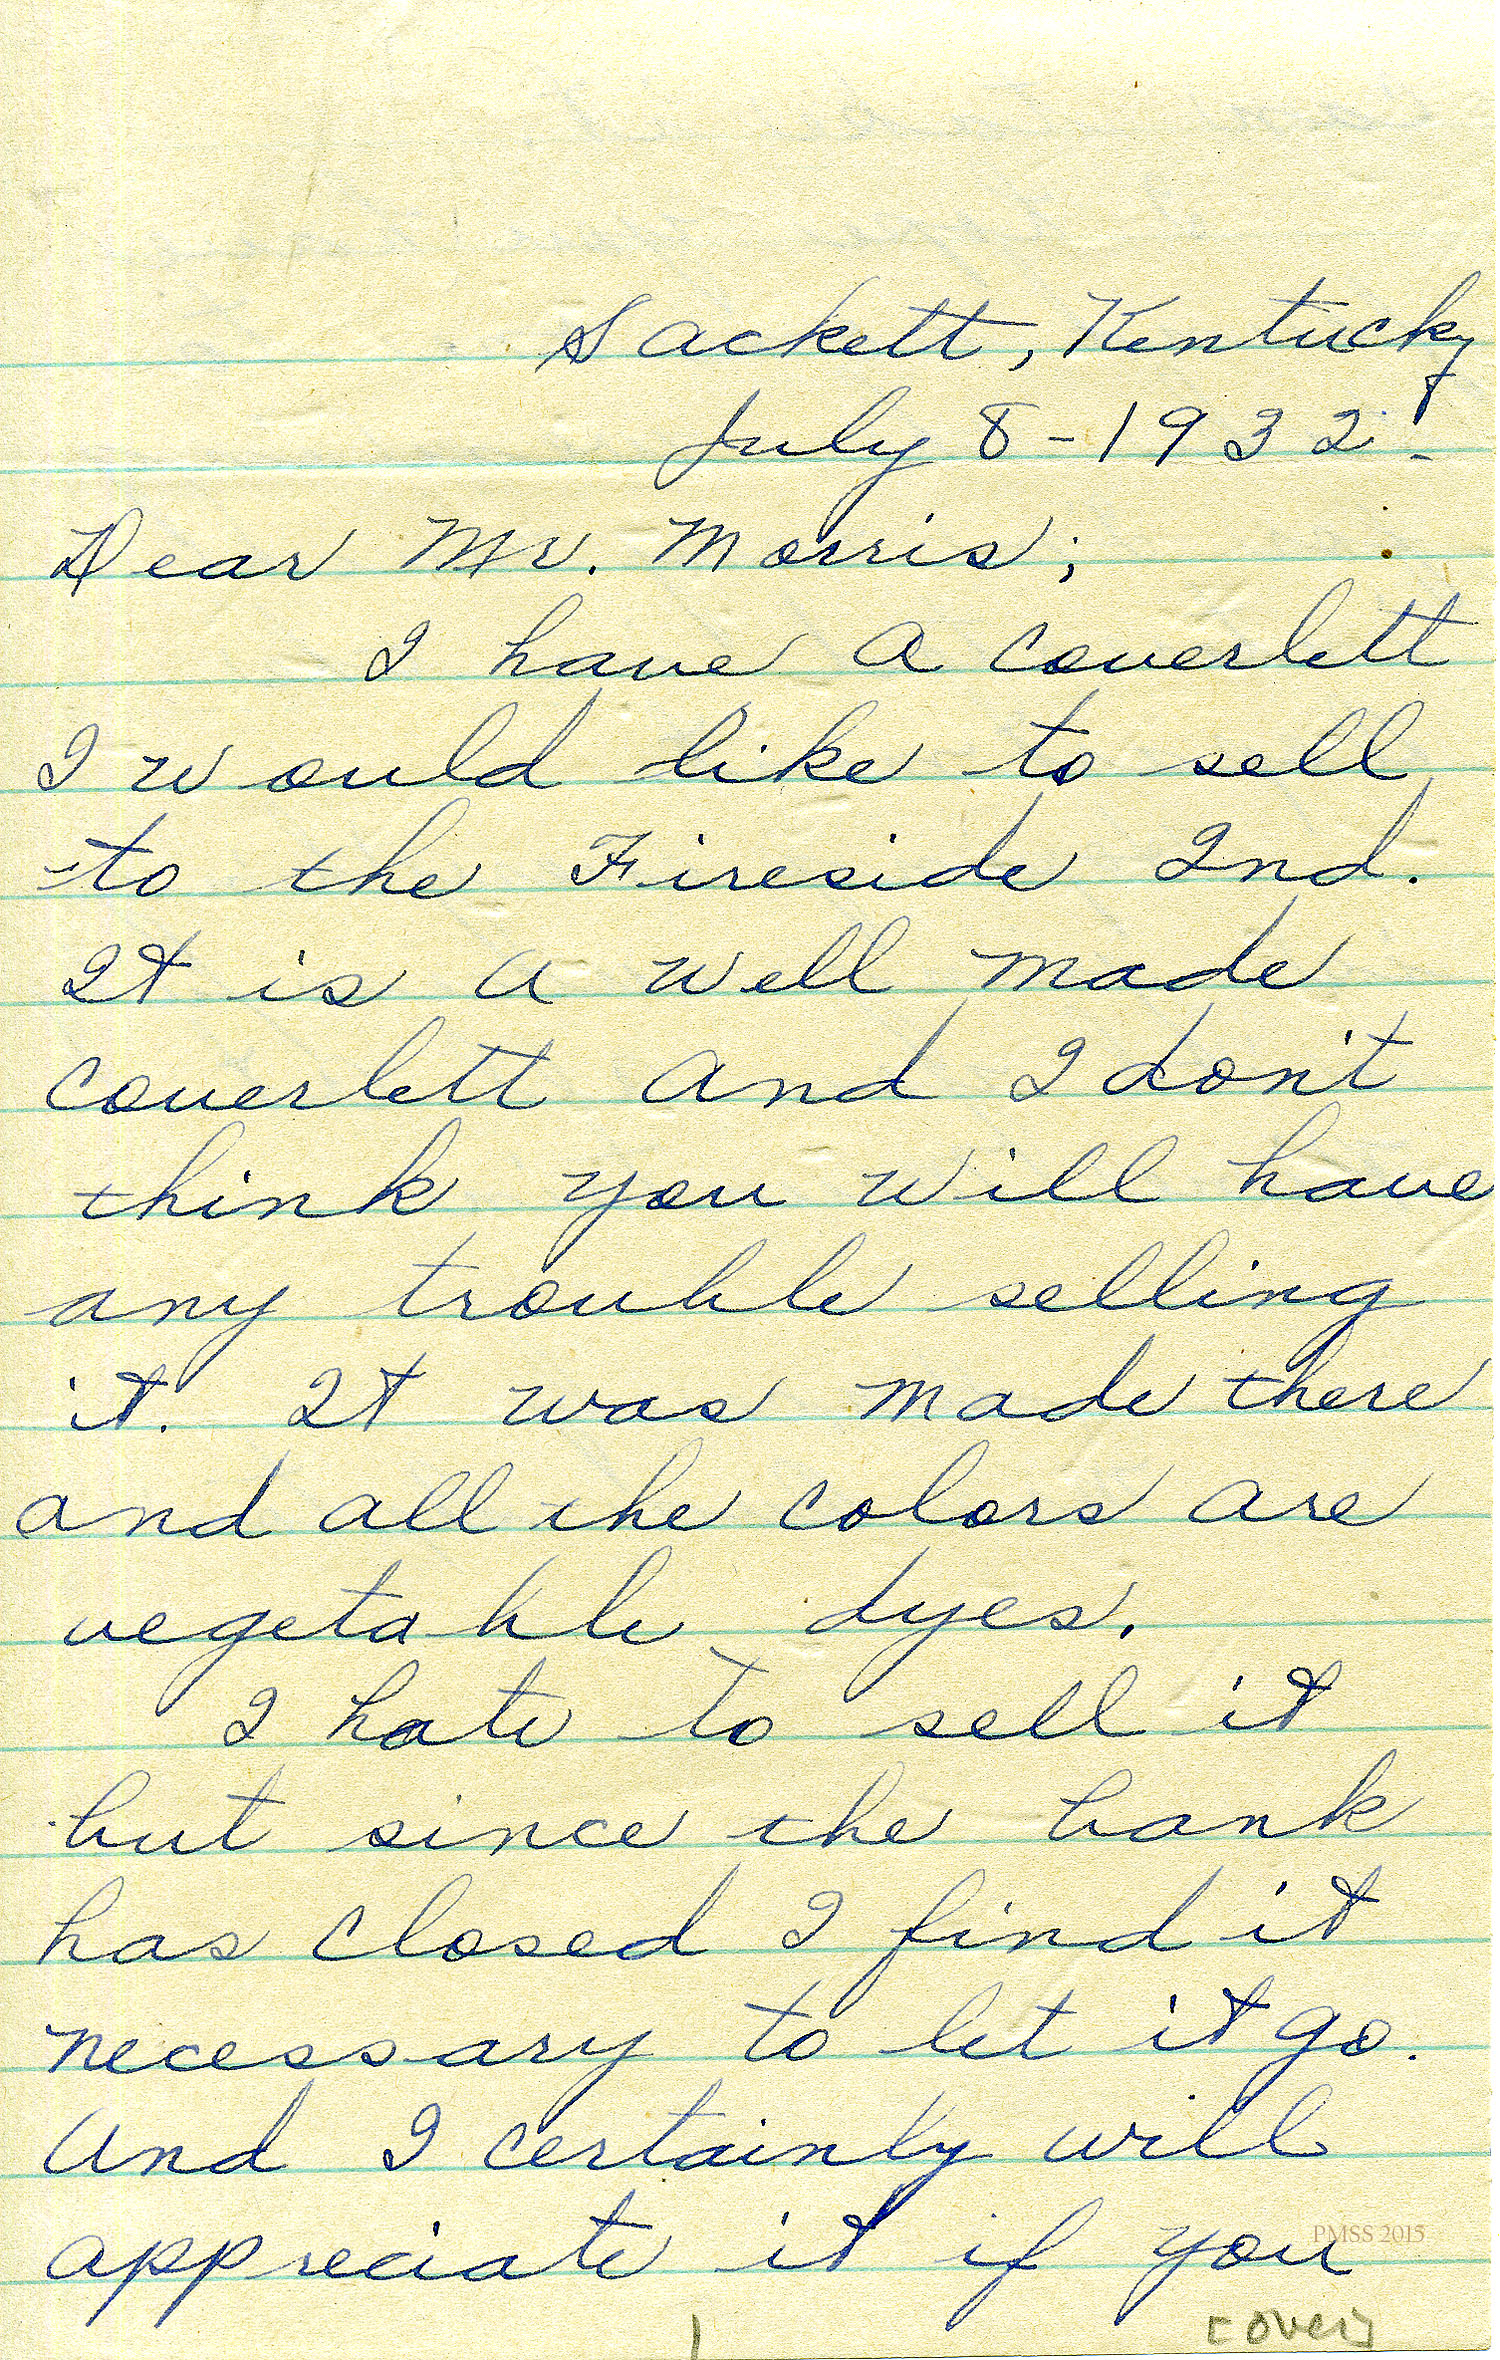 Sackett, Kentucky
July 8-1932.
Dear Mr. Morris;
I have a coverlett
I would like to sell
to the Fireside Ind.
It is a well made
coverlett and I don't
think you will have
any trouble selling
it. It was made there
and all the colors are
vegetable dyes.
I hate to sell it
but since the bank
has closed I find it
necessary to let it go.
And I certainly will
appreciate it if you
PMSS 2015
1 [over]